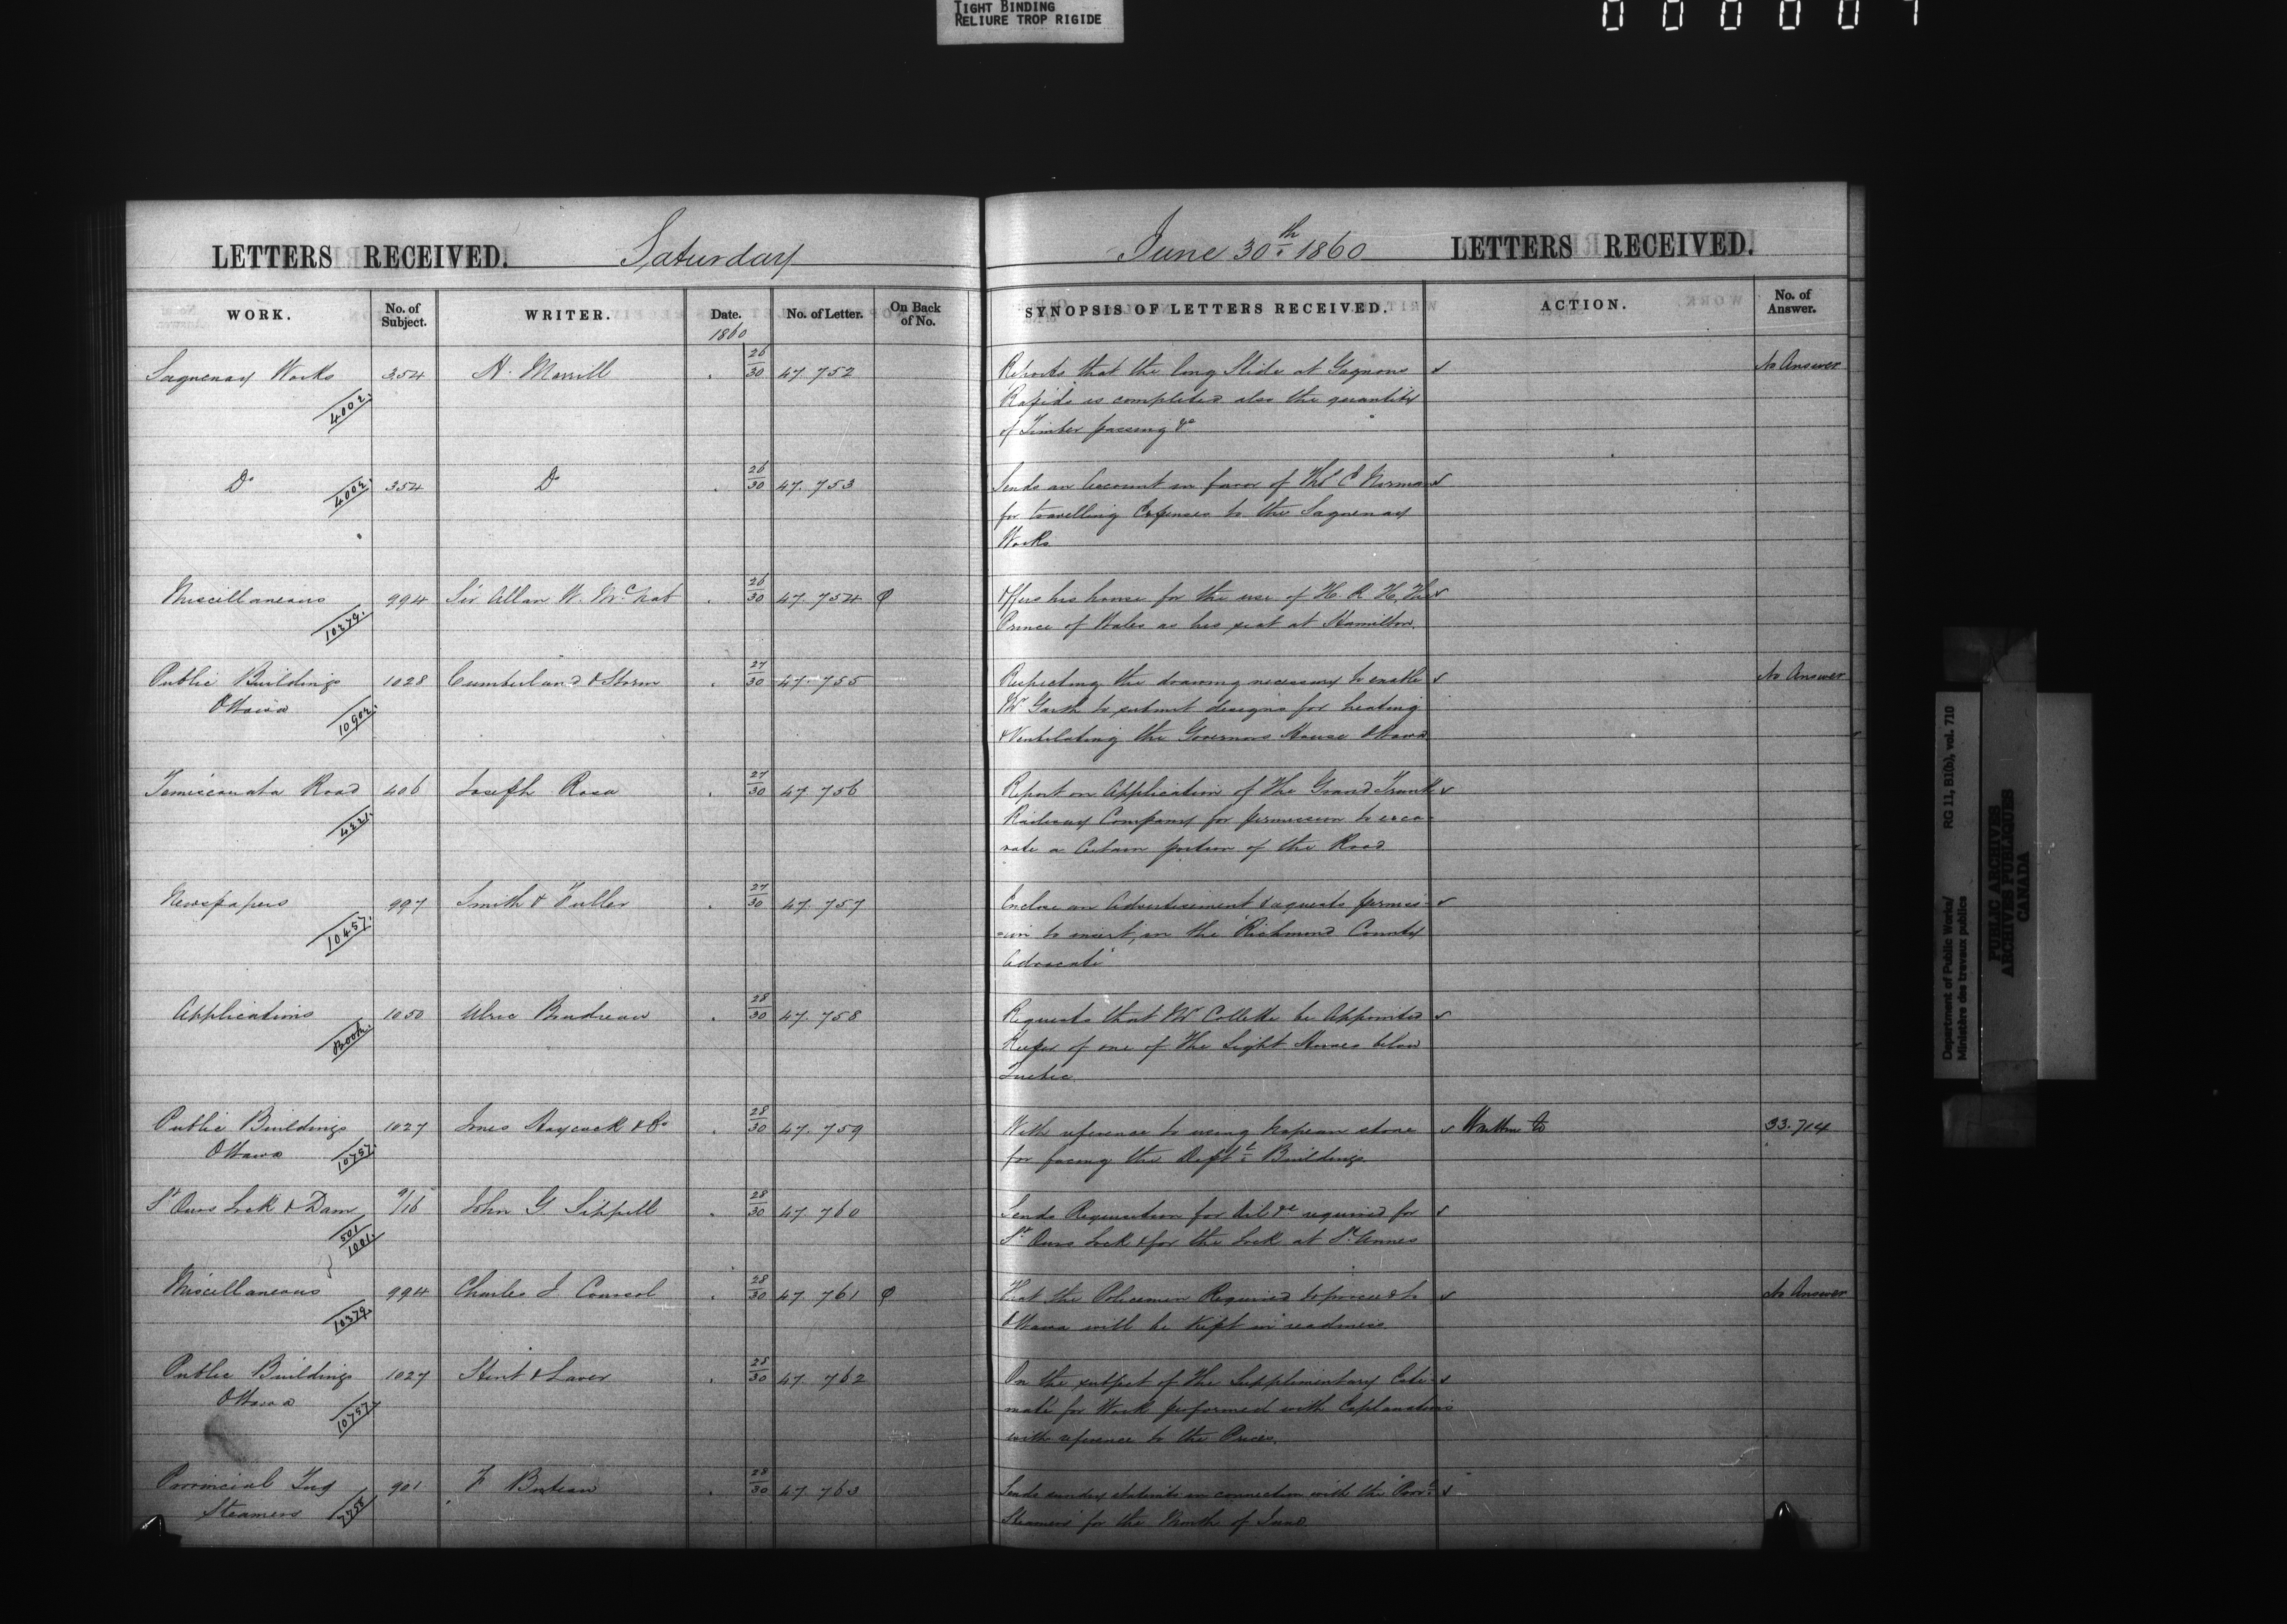 TIGHT BINDING
RELIURE TROP RIGIDE
LETTERS RECEIVED. Saturday
June 30th 1860 LETTERS RECEIVED.
WORK. No. of Subject. WRITER. Date. No. of Letter. On Back of No. SYNOPSIS OF LETTERS RECEIVED. ACTION. No. of Answer.
1860
Saguenay Works 354 H. Merrill 26/30 47.752 Reports that the long Slide at Gagnons No Answer
4002. Rapids is completed also the quantity
of Timber passing &c
Do 4002. 354 Do 26/30 47.753 Sends an Account in favor of Thos C Norman
for travelling Expenses to the Saguenay
Works
Miscellaneous 994 Sir Allan W. McNab 26/30 47.754 Offers his house for the use of H. R. H. The
10379. Prince of Wales as his seat at Hamilton.
Public Buildings 1028 Cumberland & Storm 27/30 47.755 Respecting the drawing necessary to enable No Answer
Ottawa 10902. Mr Garth to submit designs for heating
& Ventilating the Governors House Ottawa
Temiscouata Road 406 Joseph Rosa 27/30 47.756 Report on Application of The Grand Trunk
4221. Railway Company for permission to exca-
vate a Certain portion of the Road
Newspapers 997 Smith & Fuller 27/30 47.757 Enclose an Advertisement & requests permis-
10457. sion to insert, in the Richmond County
Advocate
Applications 1050 Ulric Budreau 28/30 47.758 Requests that Mr Collette be Appointed
Book. Keeper of one of The Light Houses below
Quebec
Public Buildings 1027 Jones Haycock & Co 28/30 47.759 With reference to using Nepean stone Written to 33.714
Ottawa 10757. for facing the Deptl Buildings.
St Ours Lock & Dam 9/16 John G. Sippell 28/30 47.760 Sends Requisition for Oil &c required for
501/1001. St Ours Lock & for the Lock at St Annes
Miscellaneous 994 Charles J Coursol 28/30 47.761 That the Policemen Required to proceed to No Answer
10379. Ottawa will be kept in readiness.
Public Buildings 1027 Stent & Laver 28/30 47.762 On the subject of The Supplimentary Esti-
Ottawa 10757. mate for Work performed with Explanations
with reference to the Prices.
Provincial Tug 901 F Buteau 28/30 47.763 Sends sundry statmts in connection with the "Provl
Steamers 7758 Steamers" for the Month of June
Department of Public Works/
Ministère des travaux publics
RG 11, B1(b), vol. 710
PUBLIC ARCHIVES
ARCHIVES PUBLIQUES
CANADA